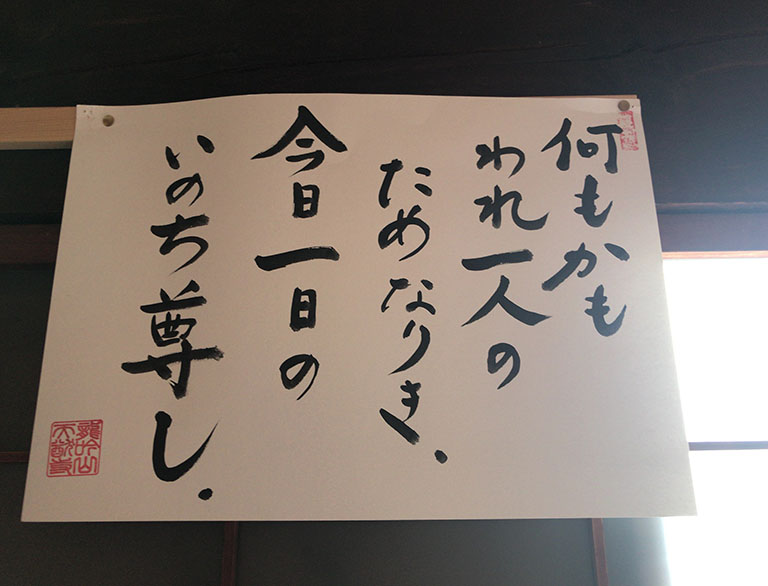 何もかも
われ一人の
ためなりき.
今日一日の
いのち尊し.